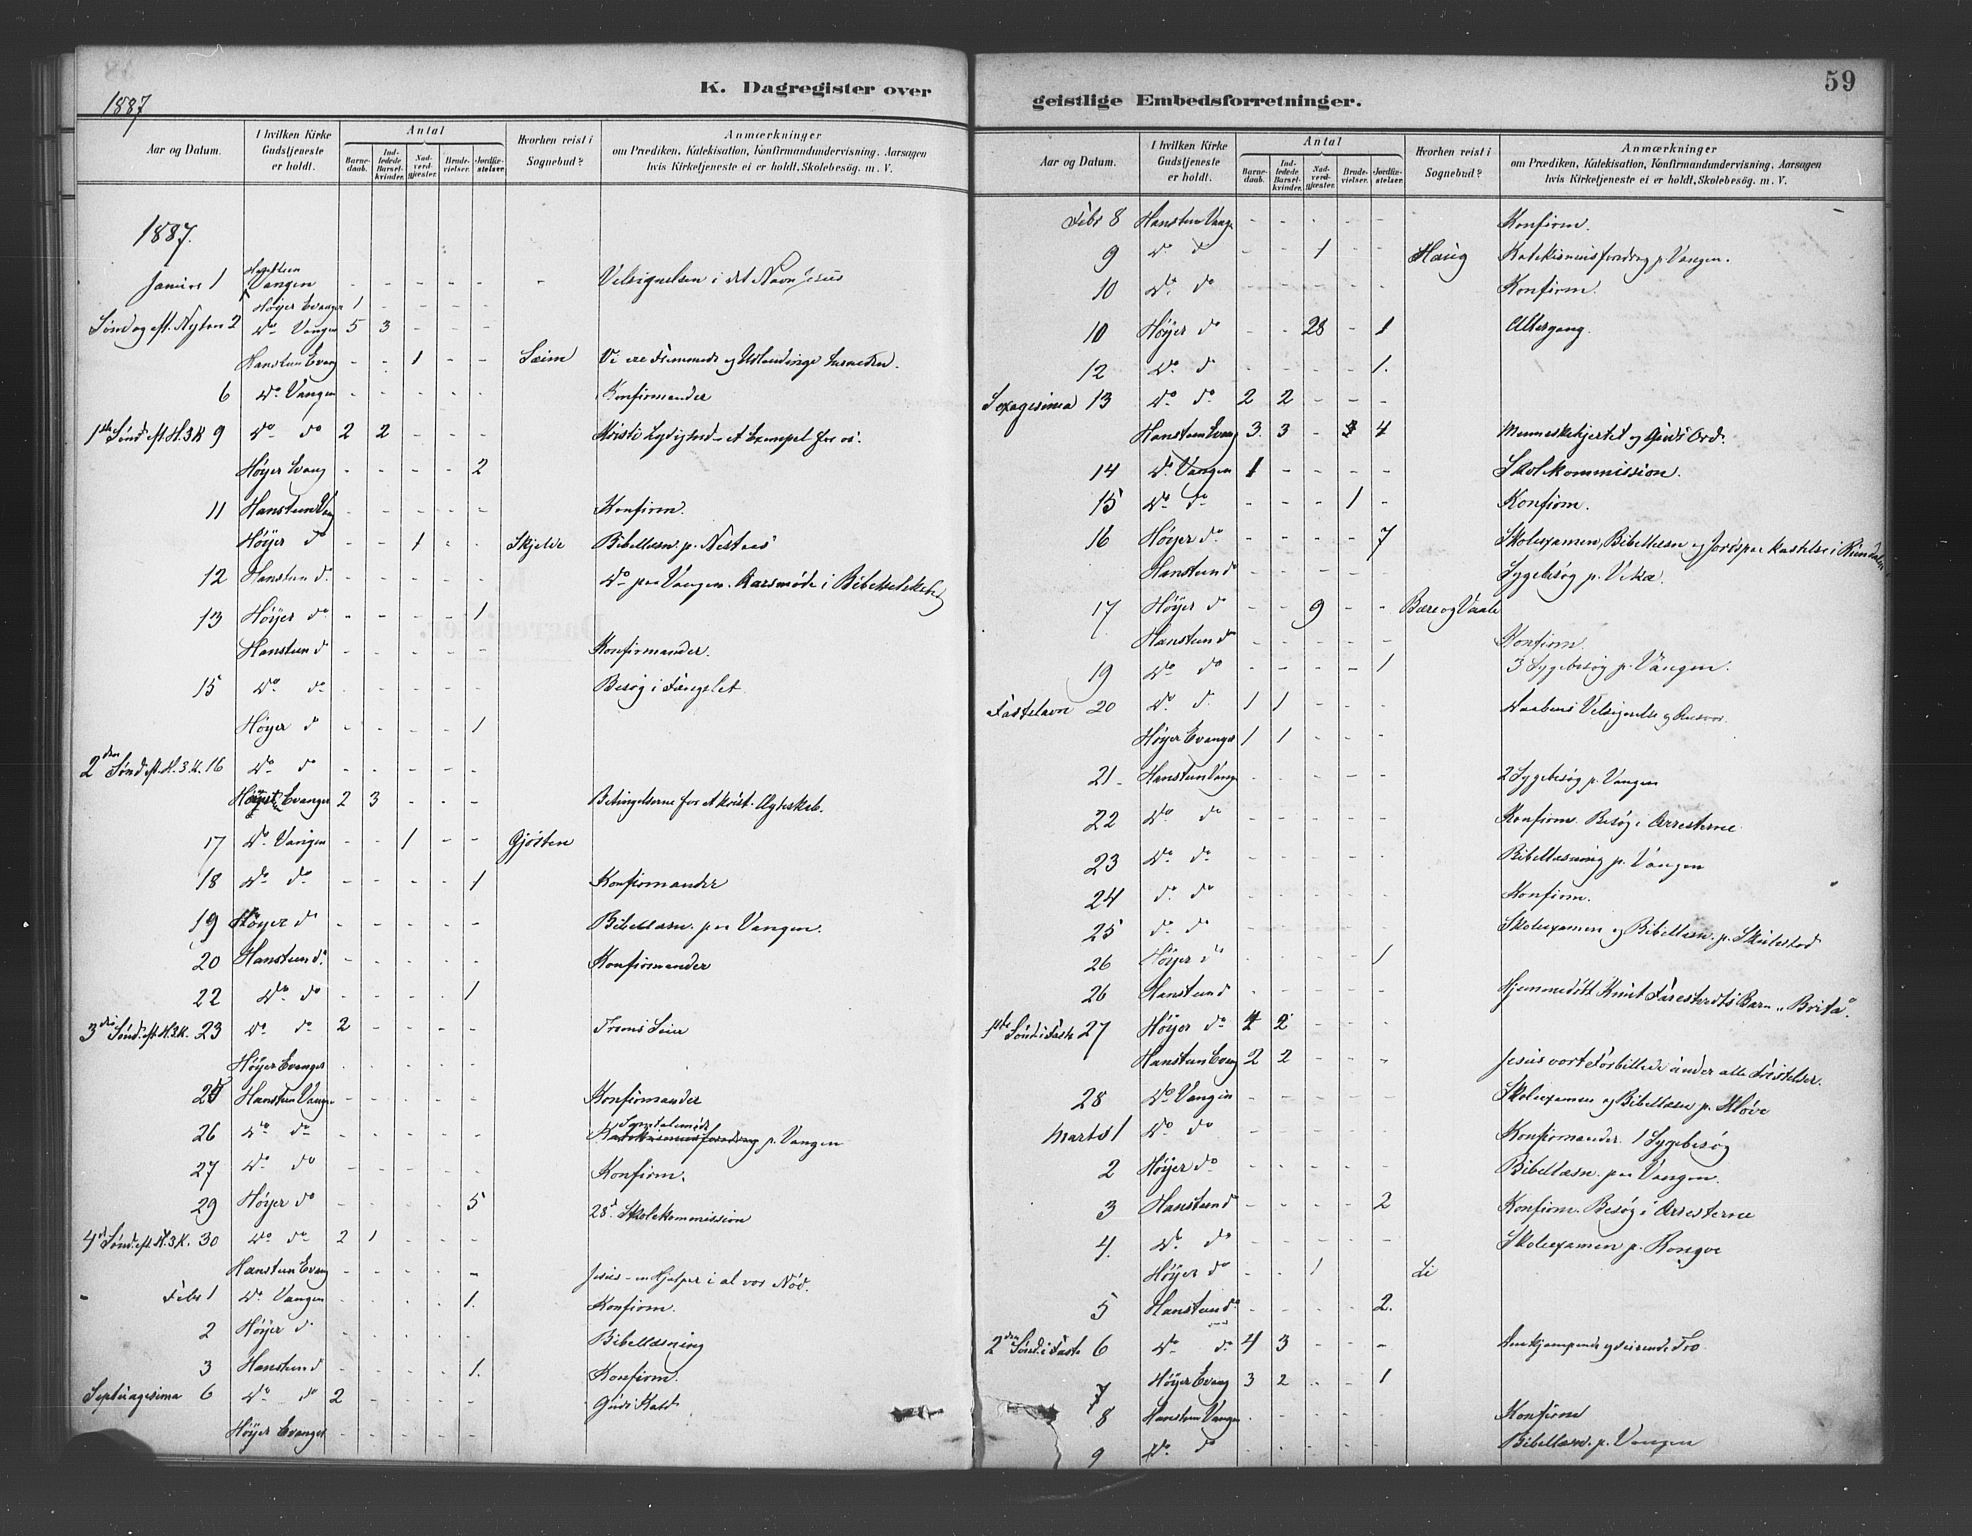 1887
K. Dagregister over
Aar og Datum.
I hvilken Kirke Gudstjeneste er holdt.
Antal
Barne-daab.
Ind-ledede Barsel-kvinder.
Nad-verd-gjester.
Brude-vielser.
Jordfæ-stelser.
Hvorhen reist i Sognebud?
Anmærkninger
om Prædiken, Katekisation, Konfirmandundervisning, Aarsagen
hvis Kirketjeneste ei er holdt, Skolebesøg. m. V.
1887.
Januar 1 Vangen - - - - - - Velsignelsen i det Navn Jesus
Høyer Evanger 1 - - - -
Søndag eft. Nytaar 2 Do Vangen 5 3 - - -
Hansteen Evang - - 1 - - Sæim Vi ere Fremmede og Udlændinge herneden.
6 Do Vangen - - - - - Konfirmander
1ste Sønd. eft. H.3.K 9 Do do 2 2 - - - Kristi Lydighed - et Exempel for os.
Høyer Evang - - - - 2
11 Hansteen Vang - - - - - Konfirm.
Høyer do - - 1 - - Skjelde Bibellæsn. p.
12 Hansteen d. - - - - - Do paa Vangen. Aarsmøde i Bibelselskabet
13 Høyer do - - - - 1
Hansteen d - - - - - Konfirmander.
15 Do do - - - - - Besøg i Fængslet
Høyer do - - - - 1
2den Sønd. eft. H.3.K. 16 Do do - - - - -
Evanger 2 3 - - - Betingelserne for et krist. Ægteskab.
17 Do Vangen - - 1 - - Gjøsten
18 Do do - - - - 1 Konfirmander
19 Høyer do - - - - - Bibellæsn. paa Vangen.
20 Hansteen d. - - - - - Konfirmander
22 Do do - - - - 1
3die Sønd. eft. H.3.K. 23 Do do 2 - - - - Troens Seier
Høyer Evanger - - - - -
25 Hansteen Vangen - - - - - Konfirmander
26 Do do - - - - - Samtalemøde p. Vangen
27 Do do - - - - - Konfirm.
29 Høyer do - - - - 5 28d. Skolekommission
4d Sønd. eft. H.3.K. 30 Do do 2 1 - - -
Hansteen Evang - - - - - Jesus - en Hjælper i al vor Nød.
Febr 1 Do Vangen - - - - 1. Konfirm.
2 Høyer d - - - - - Bibellæsning
3 Hansteen d - - - - 1. Konfirm.
Septuagesima 6 Do do 2 - - - - Guds Kald
Høyer Evanger
59
geistlige Embedsforretninger.
Aar og Datum.
I hvilken Kirke Gudstjeneste er holdt.
Antal
Barne-daab.
Ind-ledede Barsel-kvinder.
Nad-verd-gjester.
Brude-vielser.
Jordfæ-stelser.
Hvorhen reist i Sognebud?
Anmærkninger
om Prædiken, Katekisation, Konfirmandundervisning, Aarsagen
hvis Kirketjeneste ei er holdt, Skolebesøg. m. V.
Febr 8 Hansteen Vange - - - - - Konfirm.
9 Do do - - 1 - - Haug Katekismusforedrag p. Vangen.
10 Do do - - - - - Konfirm.
10 Høyer do - - 28 - 1 Altergang.
12 Do d - - - - 1.
Sexagesima 13 Do do 2 2 - - -
Hansteen Evang 3. 3 - 4 Menneskehjertet og Guds Ord.
14 Do Vangen 1 - - - - Skolekommission.
15 Do do - - - 1 - Konfirm.
16 Høyer do - - - - 7 Skolexamen, Bibellæsn og Jordspaakastelse i
Hansteen d - - - - - Sygebesøg p.
17 Høyer d - - 9 - - Bære og
Hansteen d - - - - - Konfirm.
19 Do do - - - - 1 3 Sygebesøg p. Vangen.
Fastelavn 20 Do d. 1 1 - - - Daabens Velsignelse og Ansvar.
Høyer Evanger 1 1 - - -
21 - Hansteen Vange - - - - - 2 Sygebesøg p. Vangen
22 Do do - - - - - Konfirm. Besøg i Arresterne
23 Do do - - - - - Bibellæsning p. Vangen
24 do do - - - - - Konfirm.
25 do do - - - - - Skolexamen og Bibellæsn. p. Skulestad
26 Høyer do - - - - 1
26 Hansteen d - - - - - Hjemmedøbt Knut Farestvedts Barn "Brita".
1ste Sønd. i Faste 27 Høyer do 2 - - -
Hansteen Evang 2 2 - - - Jesus vort Forbillede under alle Fristelser.
28 Do Vangen - - - - - Skolexamen og Bibellæsn p. Kløve
Marts 1 Do do - - - - - Konfirmander. 1 Sygebesøg
2 Høyer do - - - - - Bibellæsn. paa Vangen.
3 Hansteen do - - - - 2 Konfirm. Besøg i Arresterne
4. Do do - - - - - Skolexamen p. Rongve
Høyer do - - 1 - - Li
5 Hansteen do - - - - 2.
2den Sønd. i Faste 6 Do do 4 3 - - - Den kjæmpende og seirende Tro
7 Høyer Evang 3 2 - - 1
8 Hansteen Vangen - - - - - Konfirm
9 Do do - - - - - Bibellæsn. p. Vangen